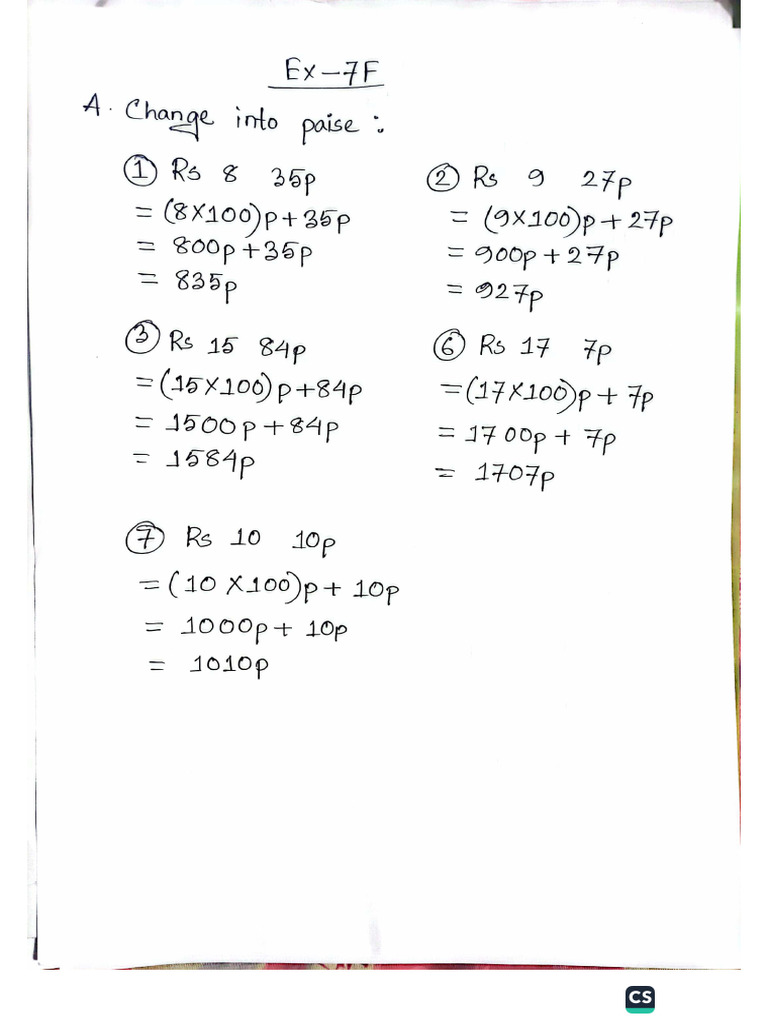 Ex-7F
A. Change into paise:
① Rs 8 35p
= (8×100)p+35p
= 800p+35p
= 835p
② Rs 9 27p
= (9×100)p+27p
= 900p+27p
= 927p
③ Rs 15 84p
=(15×100)p+84p
= 1500p+84p
= 1584p
⑥ Rs 17 7p
=(17×100)p+7p
=1700p+7p
= 1707p
⑦ Rs 10 10p
=(10×100)p+10p
= 1000p+10p
= 1010p
CS